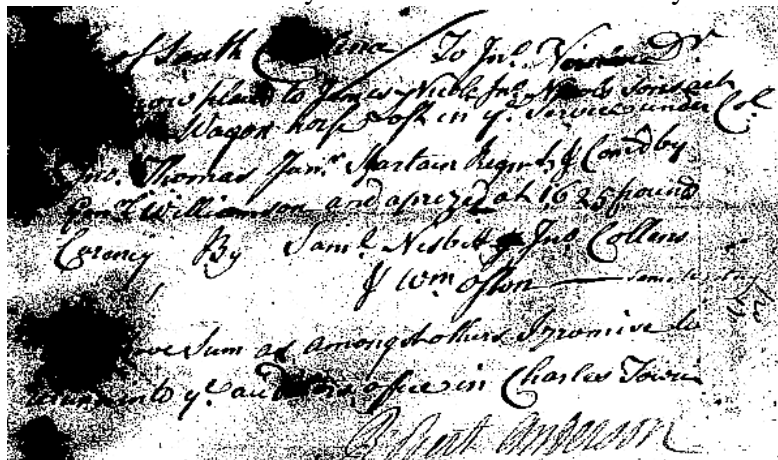 of South Carolina To Jno. Dr
to James Nicble Jno. account
Wagon horse Lost in ye. Service under Col.
Jno. Thomas Junr. Spartain Regnt. & Com'd by
Genl. Williamson and aprized at 1625 pound
Curency By Saml. Nisbet & Jno. Collens
& Wm.
ove Sum as amongst others I promise to
ye. auditors office in Charles Town
Robert Anderson